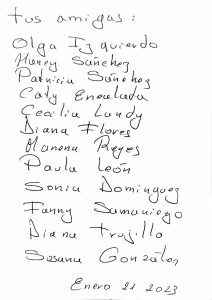 tus amigas:
Olga Izquierdo
Nancy Sánchez
Patricia Sánchez
Caty Encalada
Cecilia Landy
Diana Flores
Manena Reyes
Paula León
Sonia Dominguez
Fanny Samaniego
Diana Trujillo
Susana González
Enero 21 2023